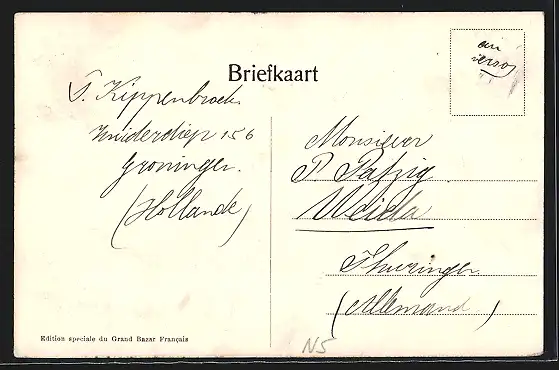 au
verso
Briefkaart
T. Kippenbroek
Zuiderdiep 156
Groningen.
(Hollande)
Monsieur
P. Patzig
Weida
Thuringen
(Allemand)
Edition speciale du Grand Bazar Français
N5